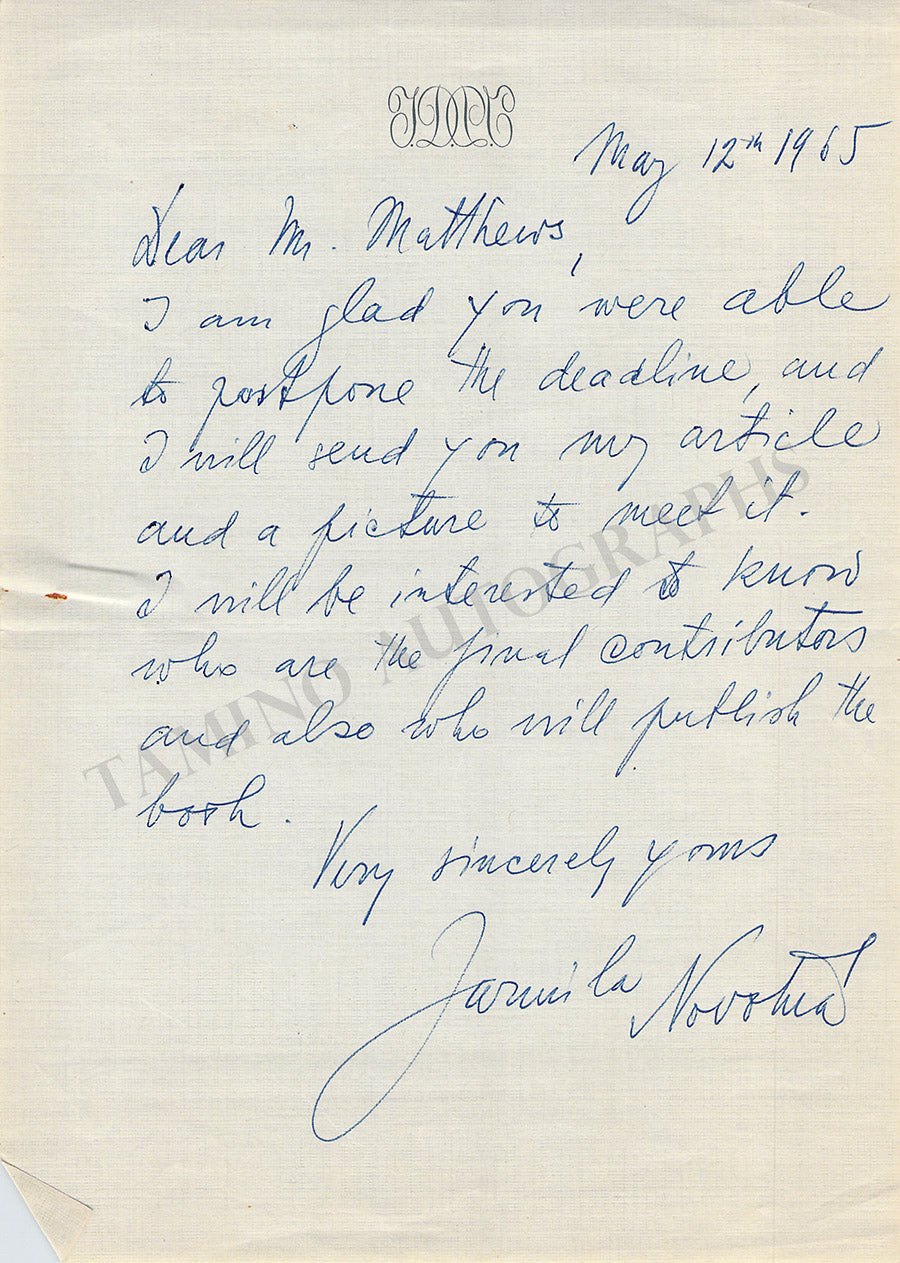 May 12th 1965
Dear Mr. Matthews,
I am glad you were able
to postpone the deadline, and
I will send you my article
and a picture to meet it.
I will be interested to know
who are the final contributors
and also who will publish the
book.
Very sincerely yours
Jarmila Novotná
TAMINO AUTOGRAPHS